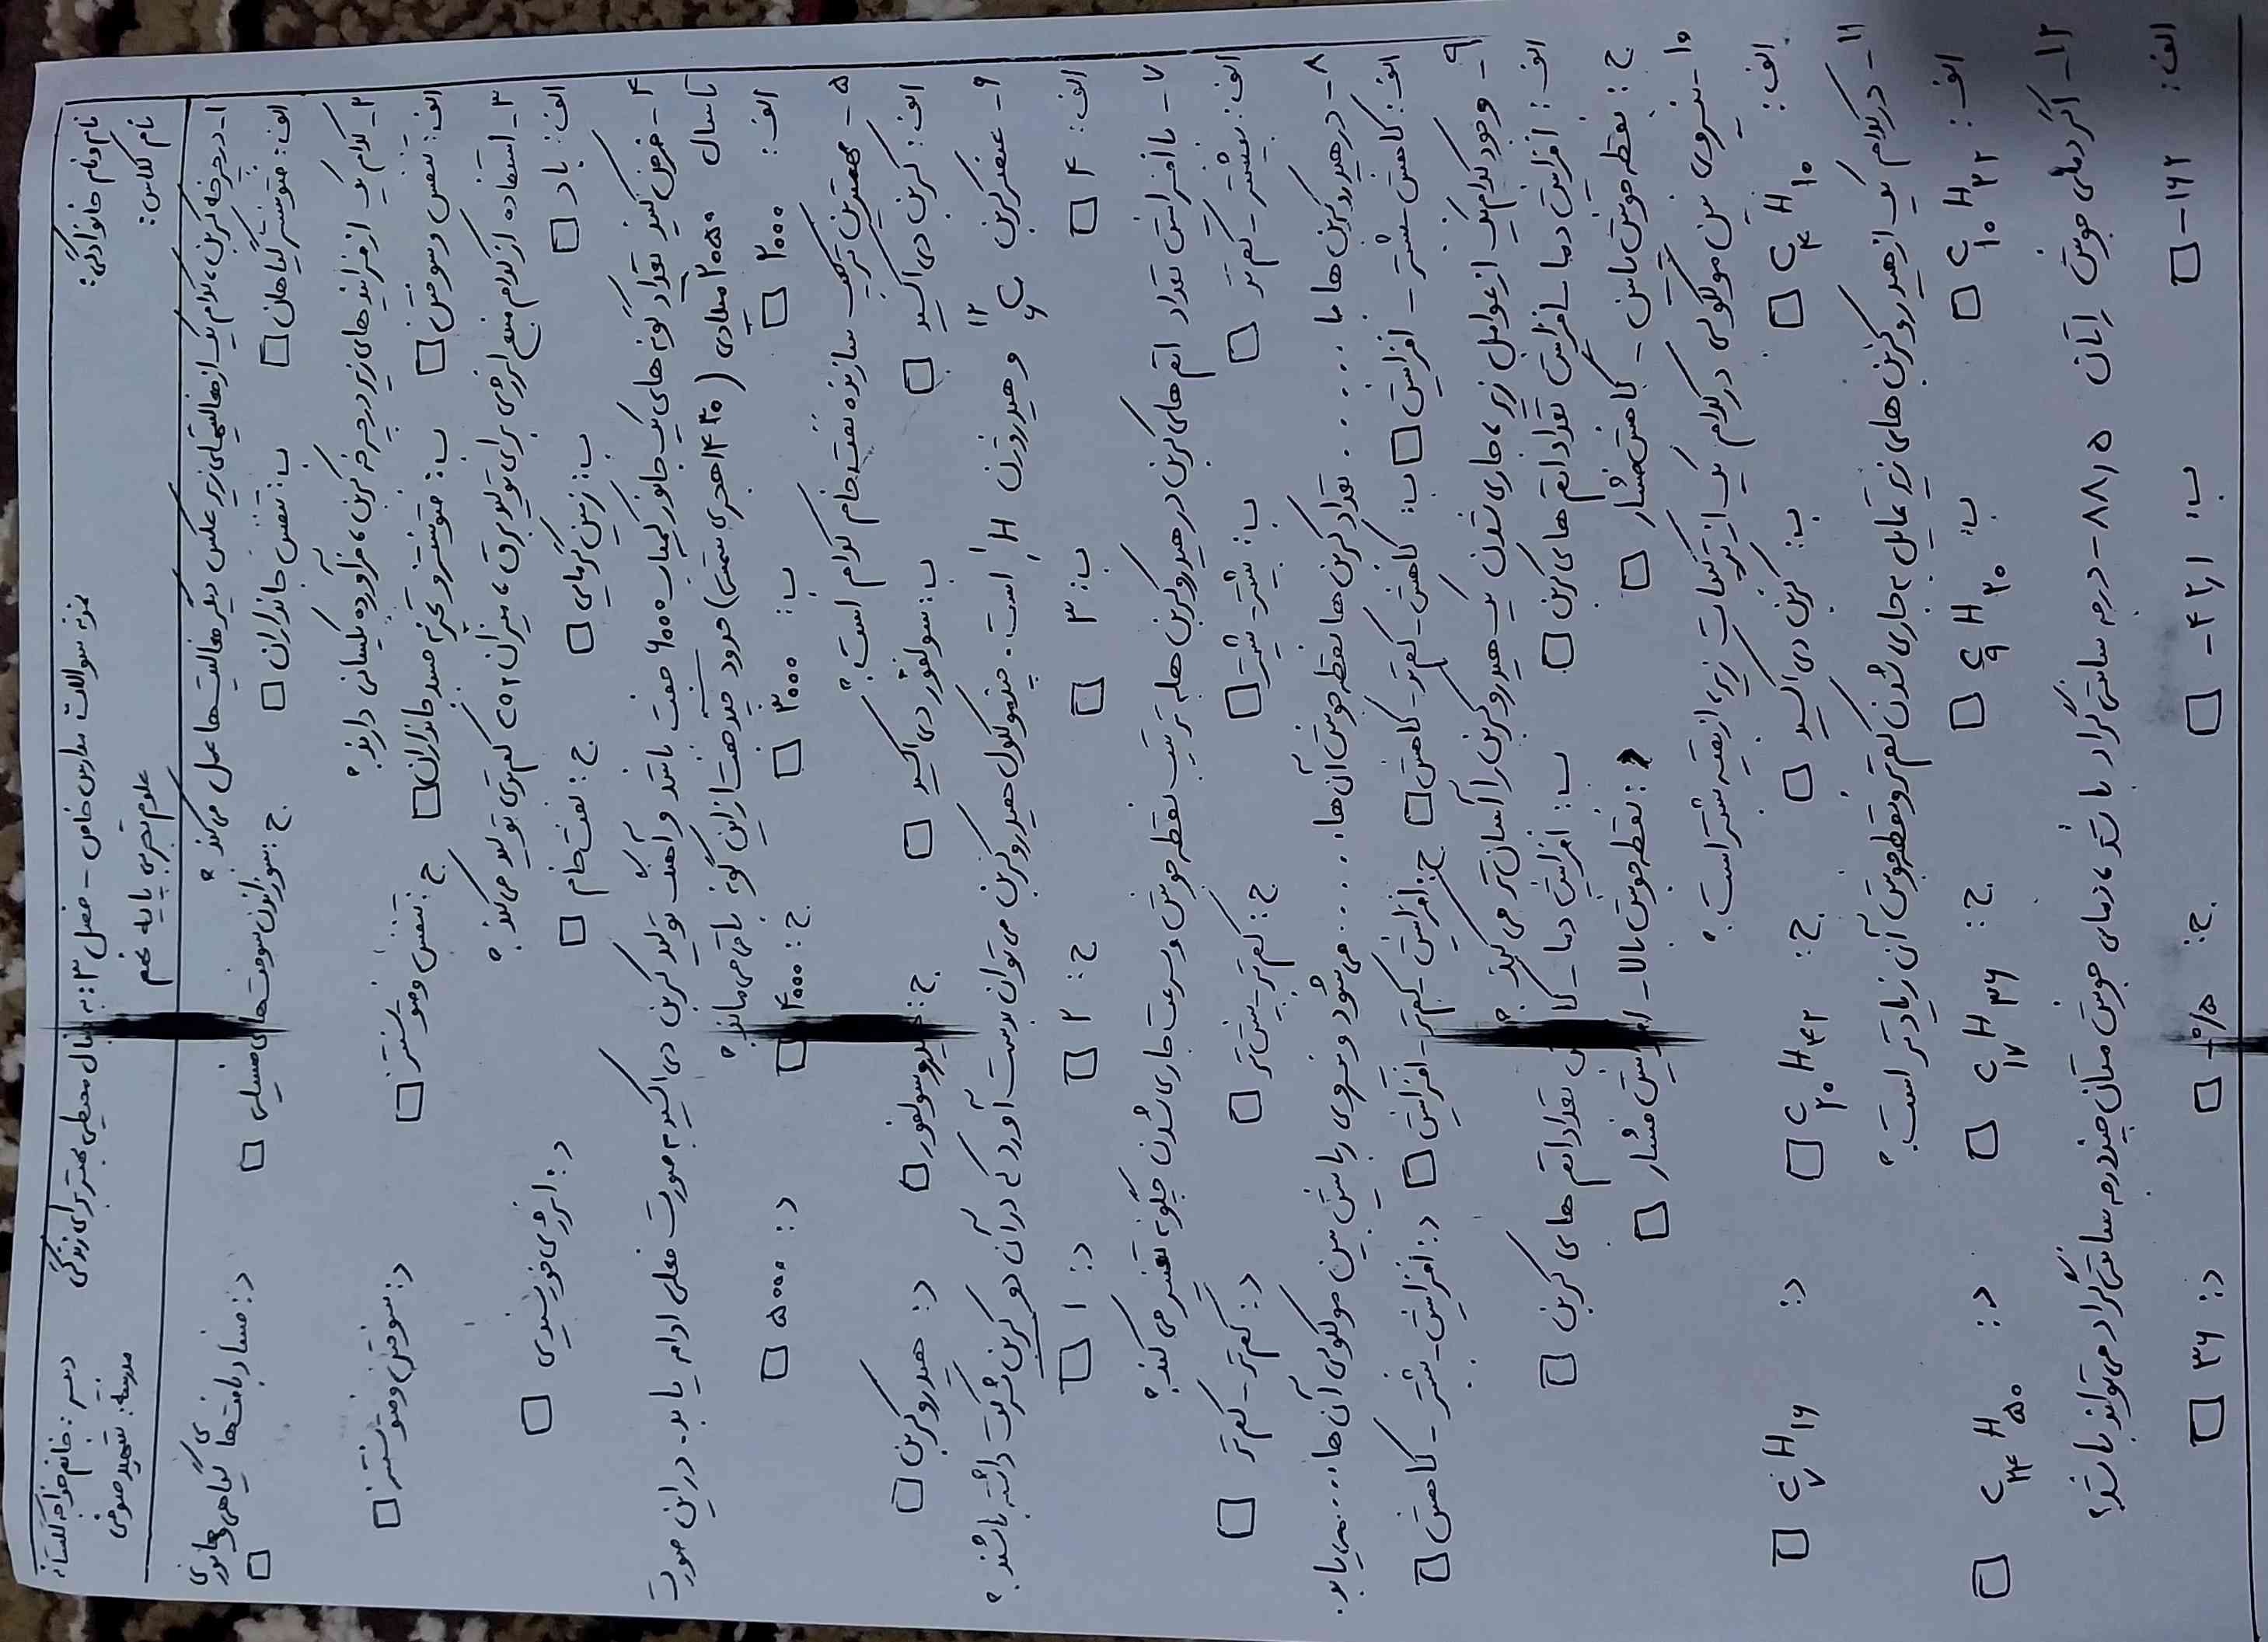 نام و نام خانوادگی: نمونه سوالات مدارس خاص - فصل ۳: به دنبال محیطی بهتر برای زندگی دبیر: خانم خواجه گلستانه
نام کلاس: علوم تجربی پایه نهم مدرسه: شهید صوفی
۱- در چرخه کربن، کدام یک از فعالیتهای زیر عکس دیگر فعالیت ها عمل می کند؟
الف: فتوسنتز گیاهان □ ب: تنفس جانداران □ ج: سوزاندن سوخت های فسیلی □ د: فساد بافت های گیاهی و جانوری □
۲- کدام یک از فرایندهای زیر در چرخه کربن، فرآورده یکسانی دارند؟
الف: تنفس و سوختن □ ب: فتوسنتز و تجزیه جسد جانداران □ ج: تنفس و فتوسنتز □ د: سوختن و فتوسنتز □
۳- استفاده از کدام منبع انرژی برای تولید برق، میزان CO۲ کم تری تولید می کند؟
الف: باد □ ب: زمین گرمایی □ ج: نفت خام □ د: انرژی خورشیدی □
۴- فرض کنید تعداد گونه های یک جانور کمیاب ۶۰۰۰ جفت باشد و آهنگ تولید کربن دی اکسید به صورت فعلی ادامه یابد. در این صورت
تا سال ۲۰۵۰ میلادی (۱۴۳۰ هجری شمسی) حدود چند جفت از این گونه باقی می ماند؟
الف: ۲۰۰۰ □ ب: ۳۰۰۰ □ ج: ۴۰۰۰ □ د: ۵۰۰۰ □
۵- مهمترین ترکیب سازنده نفت خام کدام است؟
الف: کربن دی اکسید □ ب: سولفور دی اکسید □ ج: هیدروسولفور □ د: هیدروکربن □
۶- عنصر کربن ¹²₆C و هیدروژن ₁H است. چند مولکول هیدروکربن می توان بدست آورد که در آن دو کربن شرکت داشته باشند؟
الف: ۴ □ ب: ۳ □ ج: ۲ □ د: ۱ □
۷- با افزایش تعداد اتم های کربن در هیدروکربن ها به ترتیب نقطه جوش و سرعت جاری شدن چگونه تغییر می کند؟
الف: بیشتر - کم تر □ ب: بیشتر - بیشتر □ ج: کم تر - بیش تر □ د: کم تر - کم تر □
۸- در هیدروکربن ها با ..... تعداد کربن ها نقطه جوش آن ها ..... می شود و نیروی ربایش بین مولکولی آن ها ..... می یابد.
الف: کاهش - بیشتر - افزایش □ ب: کاهش - کم تر - کاهش □ ج: افزایش - کم تر - افزایش □ د: افزایش - بیشتر - کاهش □
۹- وجود کدام یک از عوامل زیر، جاری شدن یک هیدروکربن را آسان تر می کند؟
الف: افزایش دما - افزایش تعداد اتم های کربن □ ب: افزایش دما - کاهش تعداد اتم های کربن □
ج: نقطه جوش پایین - کاهش فشار □ د: نقطه جوش بالا - افزایش فشار □
۱۰- نیروی بین مولکولی در کدام یک از ترکیبات زیر، از بقیه بیشتر است؟
الف: C₄H₁₀ □ ب: کربن دی اکسید □ ج: C₂₀H₄₂ □ د: C₇H₁₶ □
۱۱- در کدام یک از هیدروکربن های زیر تمایل به جاری شدن کم تر و نقطه جوش آن زیادتر است؟
الف: C₁₀H₂₂ □ ب: C₉H₂₀ □ ج: C₁₇H₃₆ □ د: C₂₄H₅₀ □
۱۲- اگر دمای جوش اتان ۸۸/۵- درجه سانتی گراد باشد، دمای جوش متان چند درجه سانتی گراد می تواند باشد؟
الف: ۱۶۲- □ ب: ۴۲/۱- □ ج: □ د: ۳۶ □